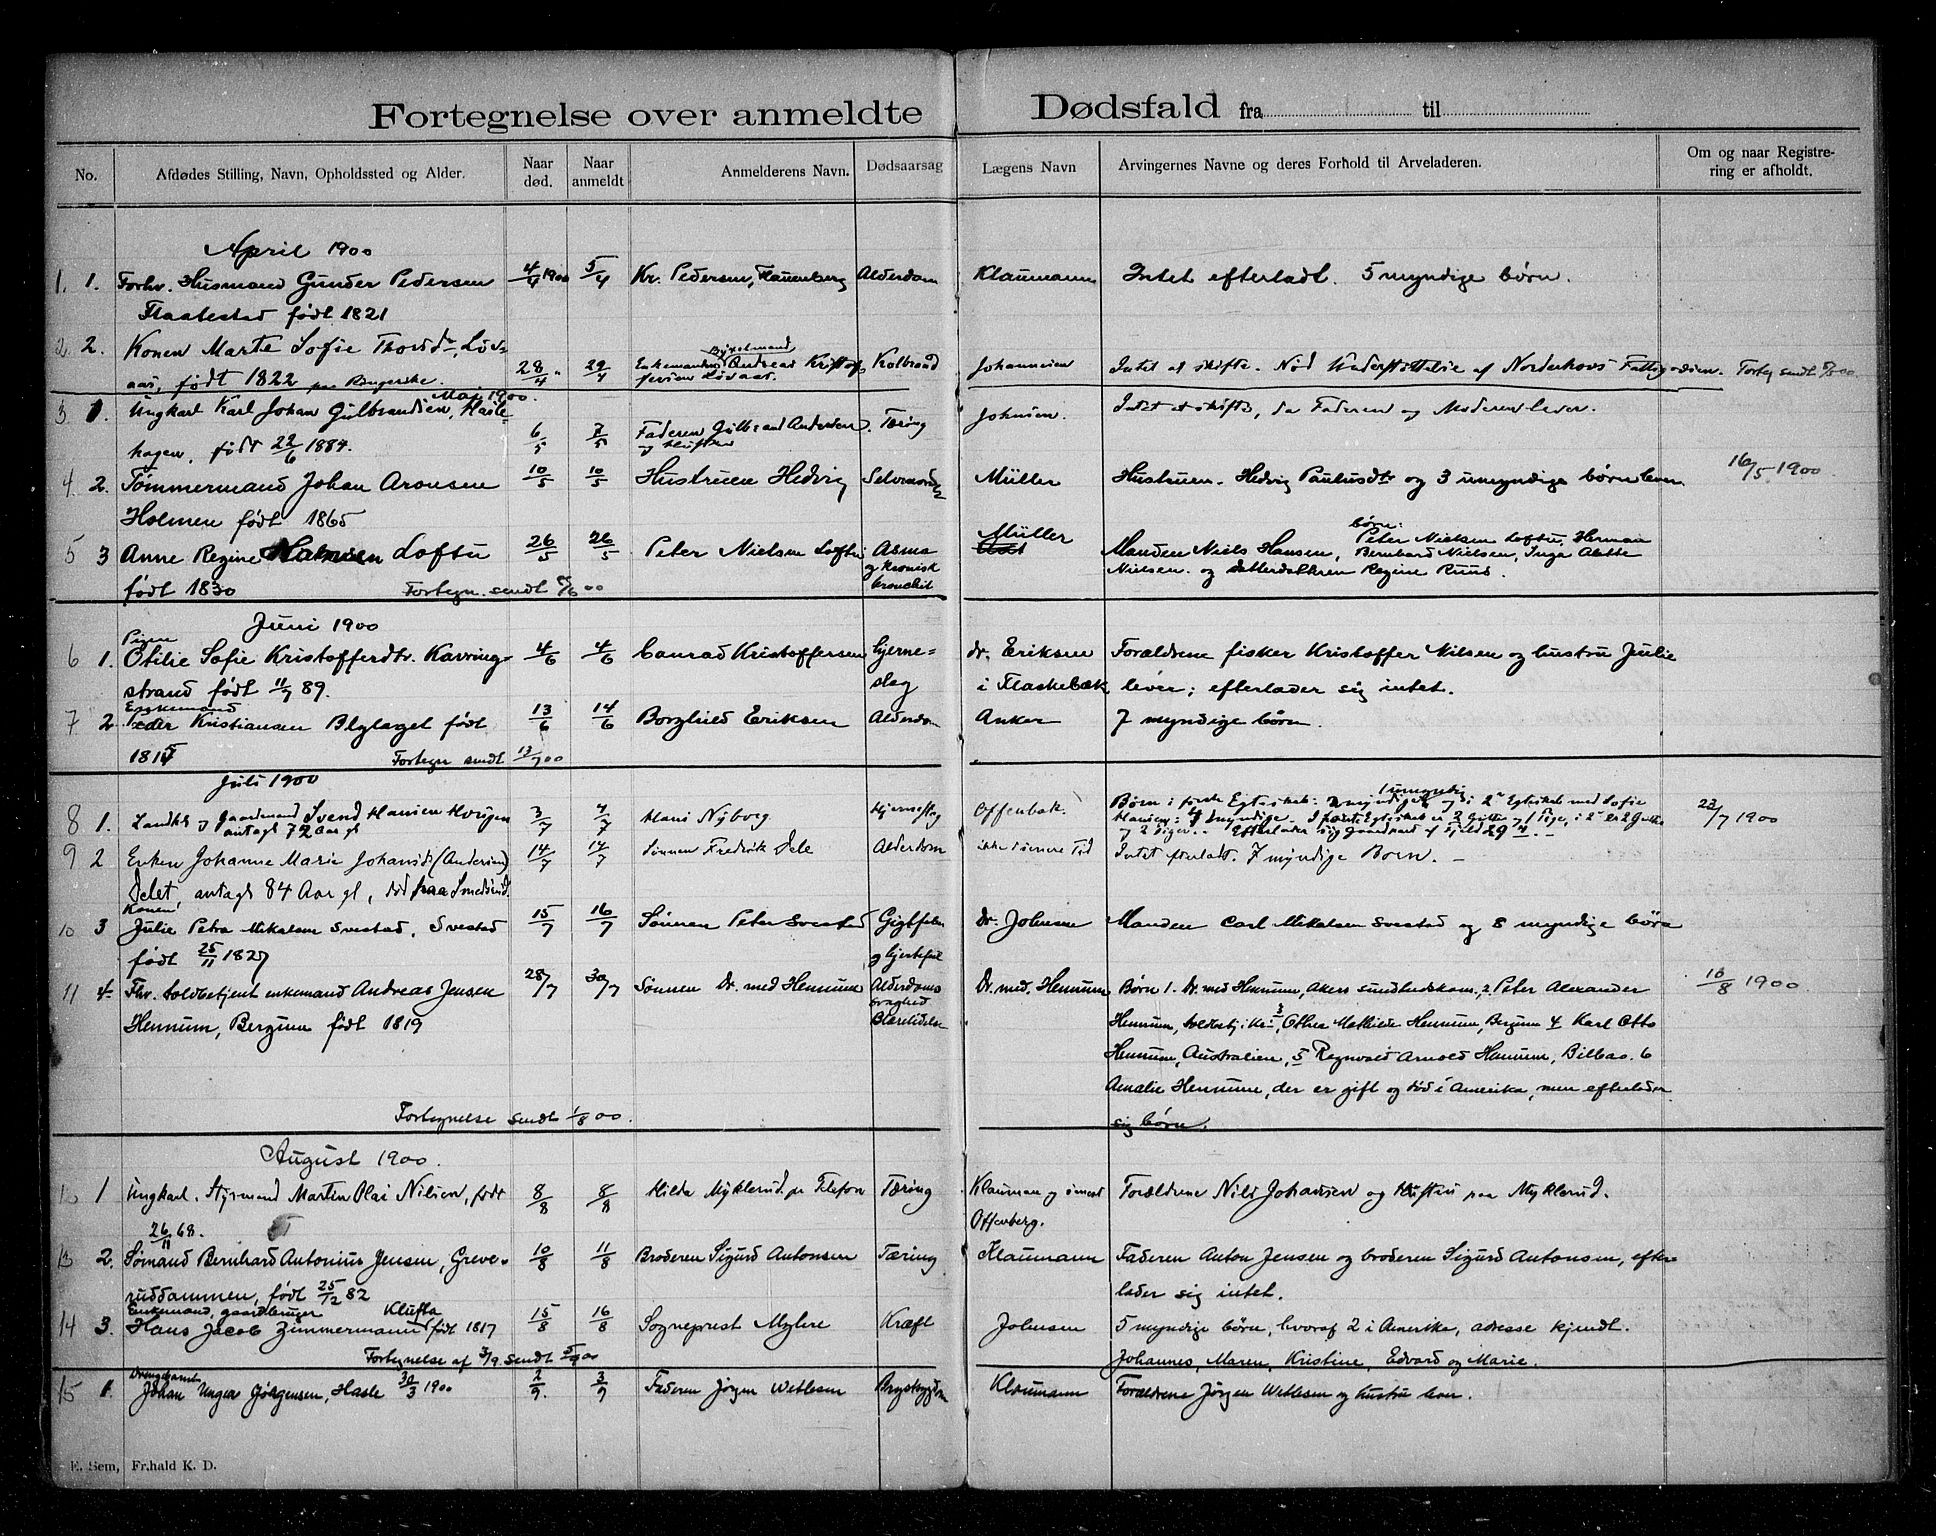 Fortegnelse over anmeldte Dødsfald fra til
No. Afdødes Stilling, Navn, Opholdssted og Alder. Naar død. Naar anmeldt Anmelderens Navn. Dødsaarsag Lægens Navn Arvingernes Navne og deres Forhold til Arveladeren. Om og naar Registrering er afholdt.
April 1900
1. 1. Forhv. Husmand Gunder Pedersen 4/4 1900 5/4 Kr. Pedersen, Flauenberg Alderdom Klaumann Intet efterladt. 5 myndige børn.
Flaatestad født 1821
2. 2. Konen Marte Sofie Thorsdtr, Løv-
aas, født 1822 paa Ringerike. 28/4 29/4 Enkemanden Andreas Kristof- Koldbrand Johannesen Intet at skifte. Nød Understøttelse af Norderhovs Fattigvæsen. Forteg sendt
fersen Løvaas.
Mai 1900.
3 1. Ungkarl Karl Johan Gulbrandsen, Hasle- Johnsen. Intet at skifte, da Faderen og Moderen lever.
hagen, født 22/6 1884. 6/5 7/5 Faderen Gulbrand Andersen Tæring
og Hustru
4 2. Tømmermand Johan Aronsen 10/5 10/5 Hustruen Hedvig Selvmord Müller Hustruen Hedvig Paulusdtr og 3 umyndige børn lever 16/5 1900
Holmen født 1865
5 3 Anne Regine Loftu 26/5 26/5 Peter Nielsen Loftu Asma Müller Manden Niels Hansen, børn: Peter Nielsen Loftu, Herman
født 1830 og kronisk Bernhard Nielsen, Inga Alette
Fortegn. sendt 00 bronchit Nielsen og datterdatteren Regine Ruud.
Juni 1900
Pigen
6 1. Otilie Sofie Kristofferdtr. Kavring- 4/6 4/6 Conrad Kristoffersen Hjerne- dr. Eriksen Forældrene fisker Kristoffer Nilsen og hustru Julie
strand født 11/9 89. slag i Flaskebæk lever; efterlader sig intet.
Enkemand
7 2. Peder Kristiansen Blylaget født 13/6 14/6 Borghild Eriksen Alderdom Anker 7 myndige børn.
1815 Fortegn sendt 13/7 00
Juli 1900
8 1. Landh. og Gaardmand Svend Hansen Haugen 3/7 4/7 Hans Nyborg Hjerneslag Offenbak. Børn i første Egteskab: 2 myndige og 1 umyndig i 2det Egteskab med Sofie 23/7 1900
antagl 72 Aar gl Hansen: 4 umyndige. I første Egteskab er 2 Gutter og 1 Pige, i 2det er 2 Gutter
og 2 Piger. Efterlader sig Gaardpart af Skyld 29
9 2 Enken Johanne Marie Johansdtr (Andersen) 14/7 14/7 Sønnen Fredrik Dele Alderdom ikke større Tid Intet efterladt. 7 myndige Børn.
Delet, antagl 84 Aar gl, død paa Smedsund.
Konen
10 3 Julie Petra Mikalsen Svestad, Svestad 15/7 16/7 Sønnen Peter Svestad Gigtfeber Dr. Johnsen Manden Carl Mikalsen Svestad og 8 myndige børn
født 25/11 1827 og hjertefeil
11 4 Fhv. toldbetjent enkemand Andreas Jensen 28/7 30/7 Sønnen Dr. med Hennum Alderdoms- Dr. med. Hennum Børn 1. Dr. med Hennum, Akers sundhedskom, 2. Peter Alexander 10/8 1900
Hennum, Bergum født 1819 svaghed Hennum, toldbetj i Kr. 3, Othea Mathilde Hennum, Bergum 4 Karl Otto
Blærelidelse Hennum, Australien, 5 Regnvald Arnold Hennum, Bilbao. 6
Amalie Hennum, der er gift og død i Amerika, men efterlader
Fortegnelse sendt 1/8 00. sig børn.
August 1900.
12 1 Ungkarl. Styrmand Martin Olai Nilsen, født 8/8 8/8 Hilda Myklerud pr Telefon Tæring Klauman og Forældrene Nils Johansen og Hustru paa Myklerud.
26/11 68. Offenberg.
13 2. Sømand Bernhard Antonius Jensen, Greve- 10/8 11/8 Broderen Sigurd Antonsen Tæring Klaumann Faderen Anton Jensen og broderen Sigurd Antonsen, efter-
ruddammen, født 25/12 82 lader sig intet.
Enkemand, gaardbruger Klufta
14 3. Hans Jacob Zimmermann født 1817 15/8 16/8 Sogneprest Myhre Kræft Johnsen 5 myndige børn, hvoraf 2 i Amerika, adresse kjendt.
Fortegnelse af 3/9 sendt 00 Johannes, Maren, Kristine, Edvard og Marie.
Drengebarnet
15 1. Johan Unger Jørgensen, Hasle 30/3 1900 2/9. 3/9 Faderen Jørgen Wetlesen Brystsygdom Klaumann Forældrene Jørgen Wetlesen og hustru
E. Sem, Fr.hald K. D.